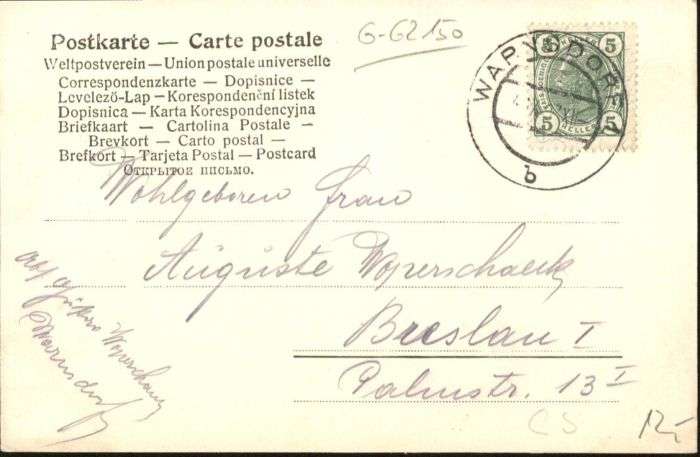 G-62150
Postkarte — Carte postale
Weltpostverein — Union postale universelle
Correspondenzkarte — Dopisnice —
Levelező-Lap — Korespondenční listek
Dopisnica — Karta Korespondencyjna
Briefkaart — Cartolina Postale —
Brevkort — Carto postal —
Brefkort — Tarjeta Postal — Postcard
Открытое письмо.
5 5
5 HELLER 5
b
Wohlgeboren Frau
Auguste
Breslau I
Palmstr. 13 I
Abs.
Warnsdorf
CS
12,-